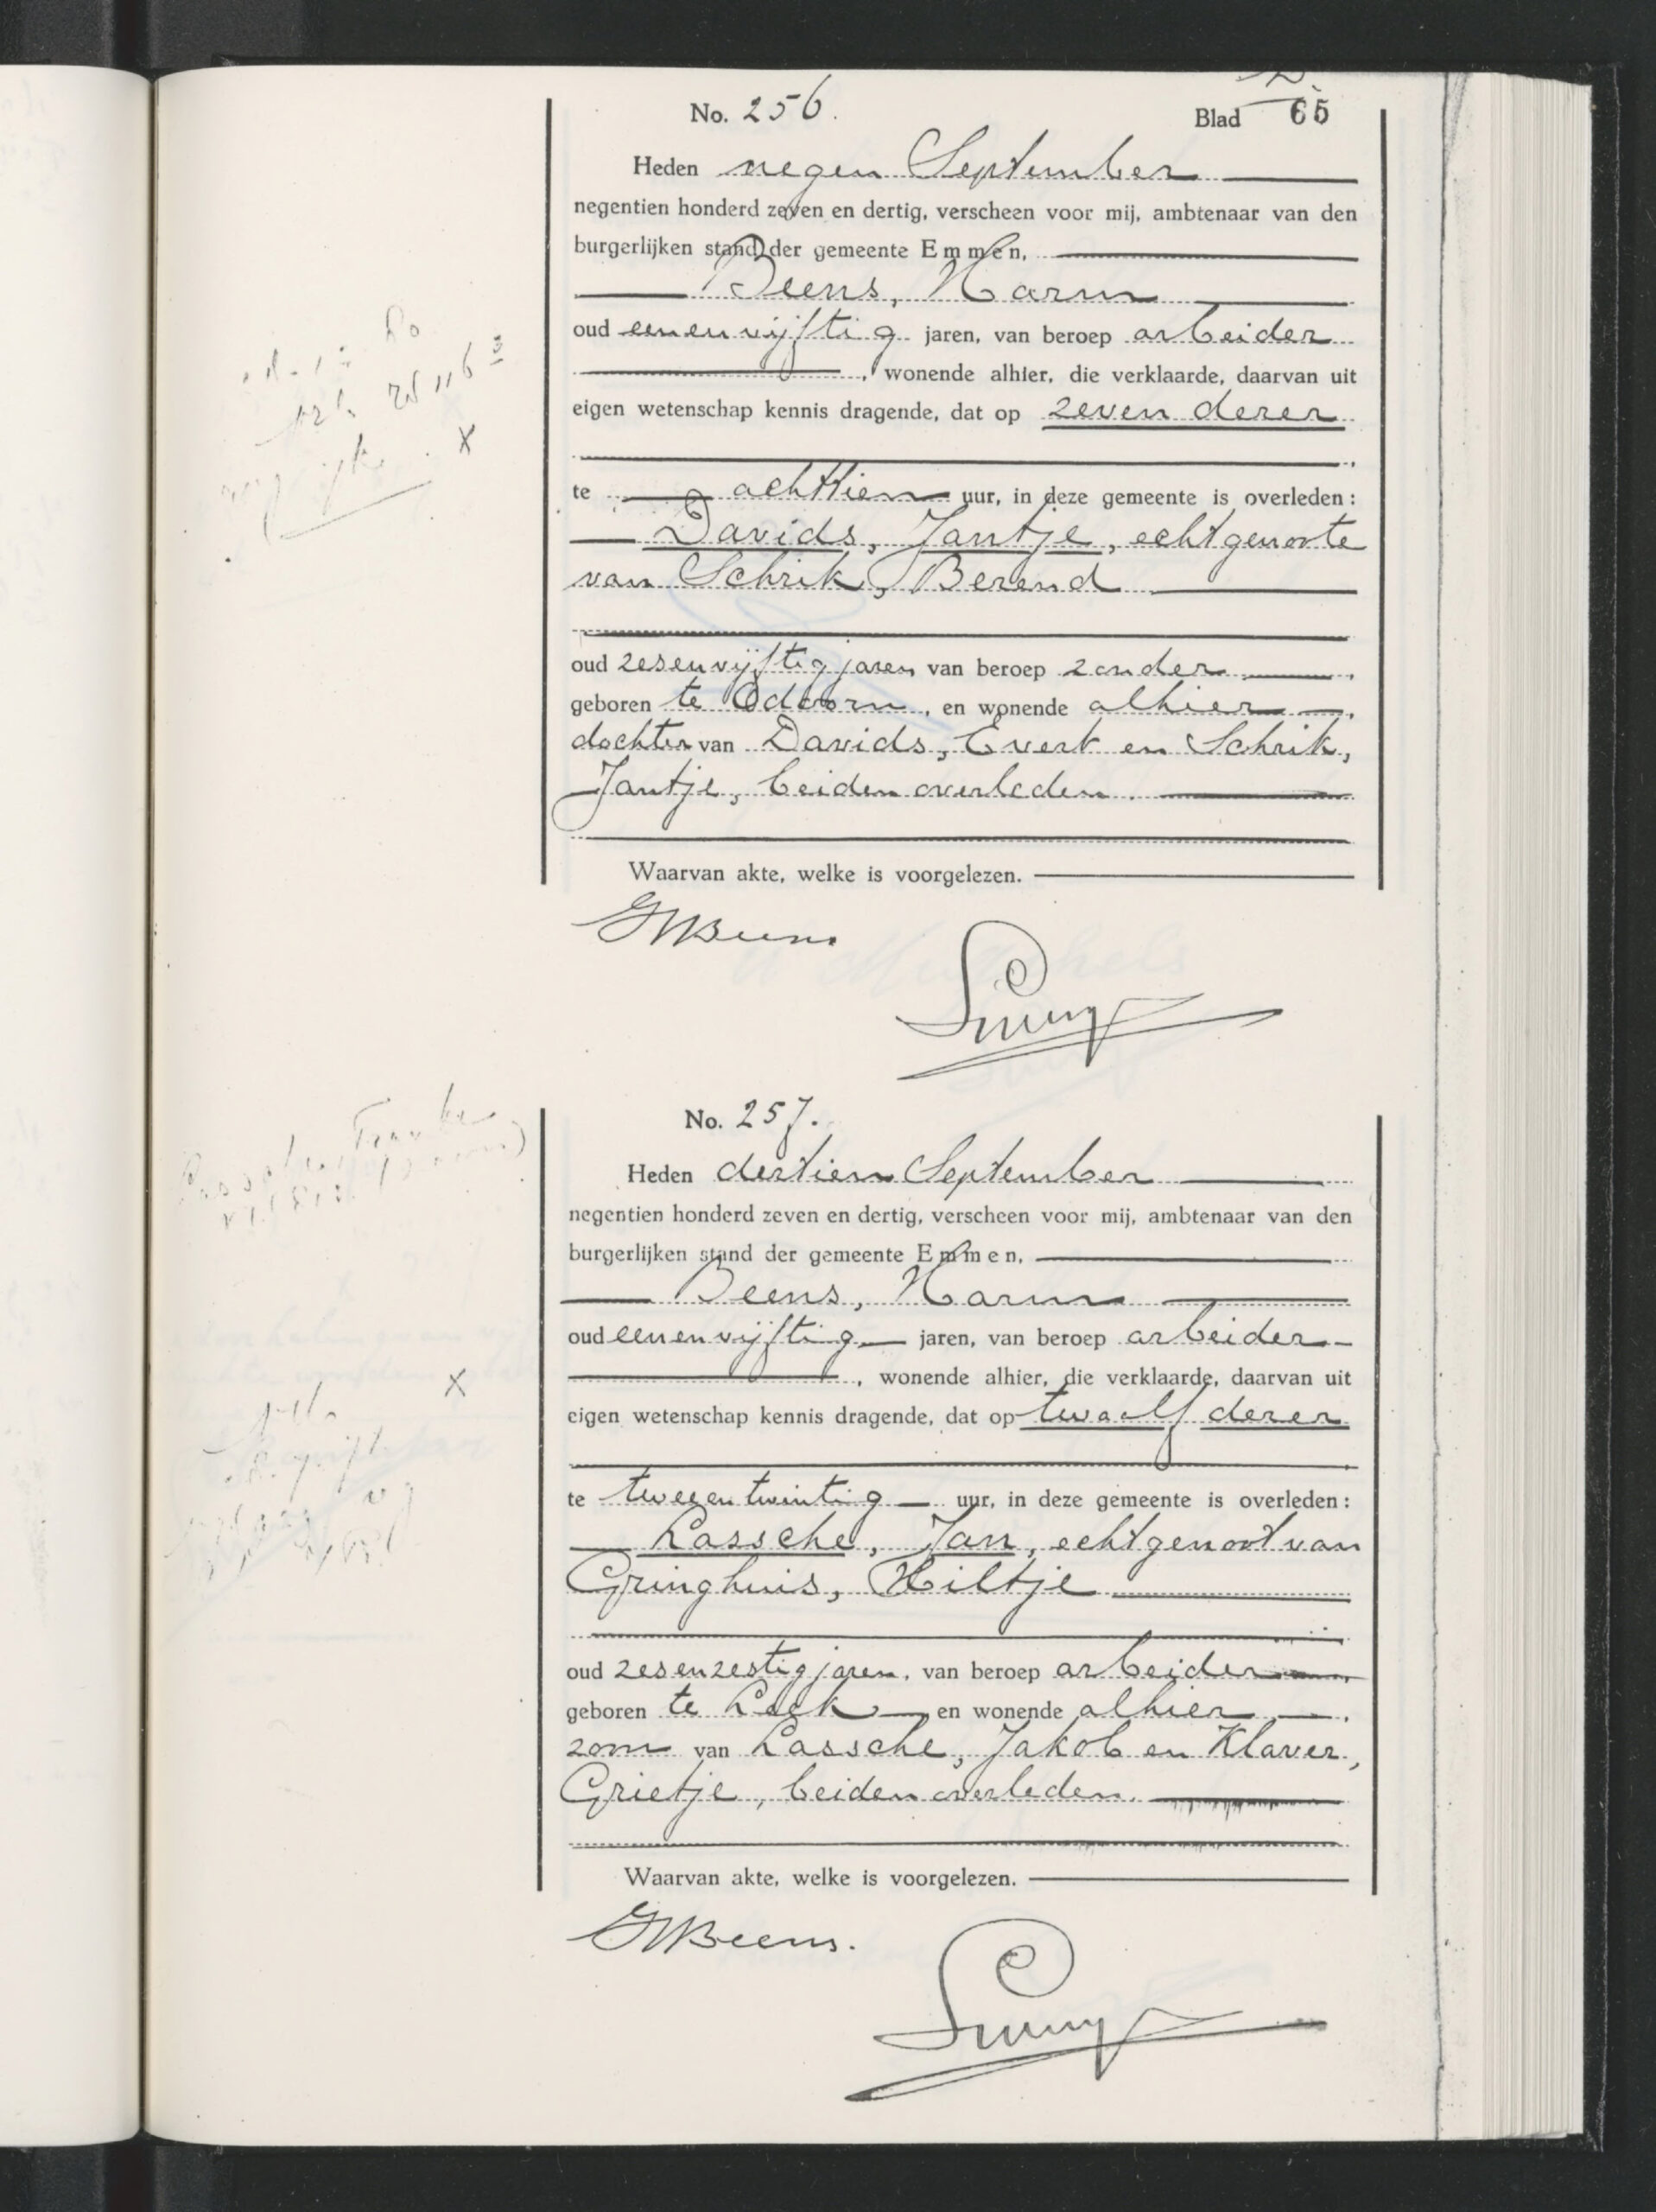 No. 256.
Blad 65
Heden negen September
negentien honderd zeven en dertig, verscheen voor mij, ambtenaar van den
burgerlijken stand der gemeente Emmen,
Beens, Harm
oud eenenvijftig jaren, van beroep arbeider
, wonende alhier, die verklaarde, daarvan uit
eigen wetenschap kennis dragende, dat op zeven dezer
te achttien uur, in deze gemeente is overleden:
Davids, Jantje, echtgenoote
van Schrik, Berend
oud zesenvijftig jaren, van beroep zonder,
geboren te Odoorn, en wonende alhier,
dochter van Davids, Evert en Schrik,
Jantje, beiden overleden.
Waarvan akte, welke is voorgelezen.
HBeens
X
No. 257.
Heden dertien September
negentien honderd zeven en dertig, verscheen voor mij, ambtenaar van den
burgerlijken stand der gemeente Emmen,
Beens, Harm
oud eenenvijftig jaren, van beroep arbeider
, wonende alhier, die verklaarde, daarvan uit
eigen wetenschap kennis dragende, dat op twaalf dezer
te tweeentwintig uur, in deze gemeente is overleden:
Lassche, Jan, echtgenoot van
Gringhuis, Hiltje
oud zesenzestig jaren, van beroep arbeider,
geboren te Leek en wonende alhier,
zoon van Lassche, Jakob en Klaver,
Grietje, beiden overleden.
Waarvan akte, welke is voorgelezen.
HBeens.
X